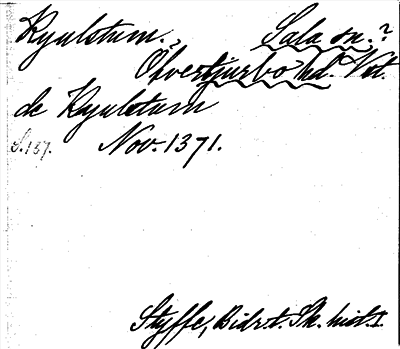 Kyulstum. Sala sn.?
Öfvertjurbo hd. Vstm.
de Kyulstum
S.157. Nov. 1371.
Styffe, Bidr. t. Sk. hist. I.